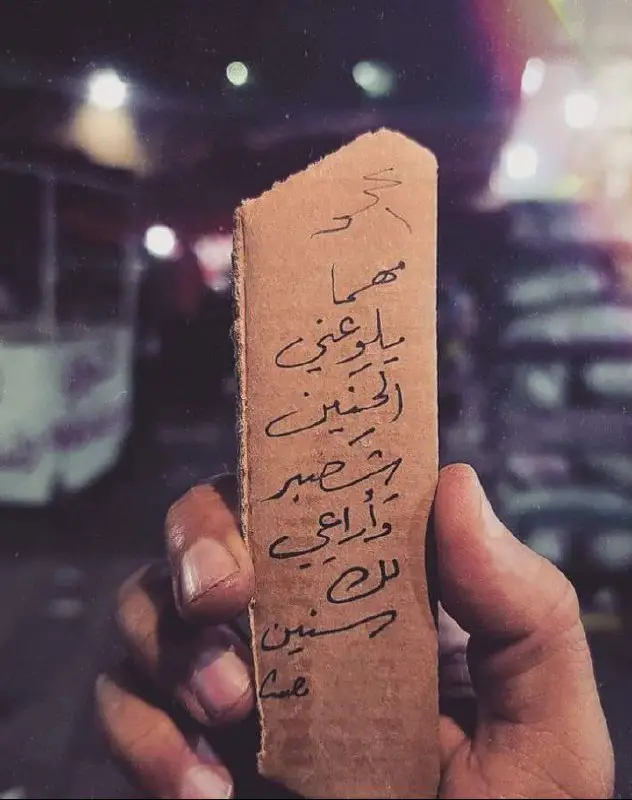 مهما
يلوعني
الحنين
شصبر
وأراعي
لك
سنين